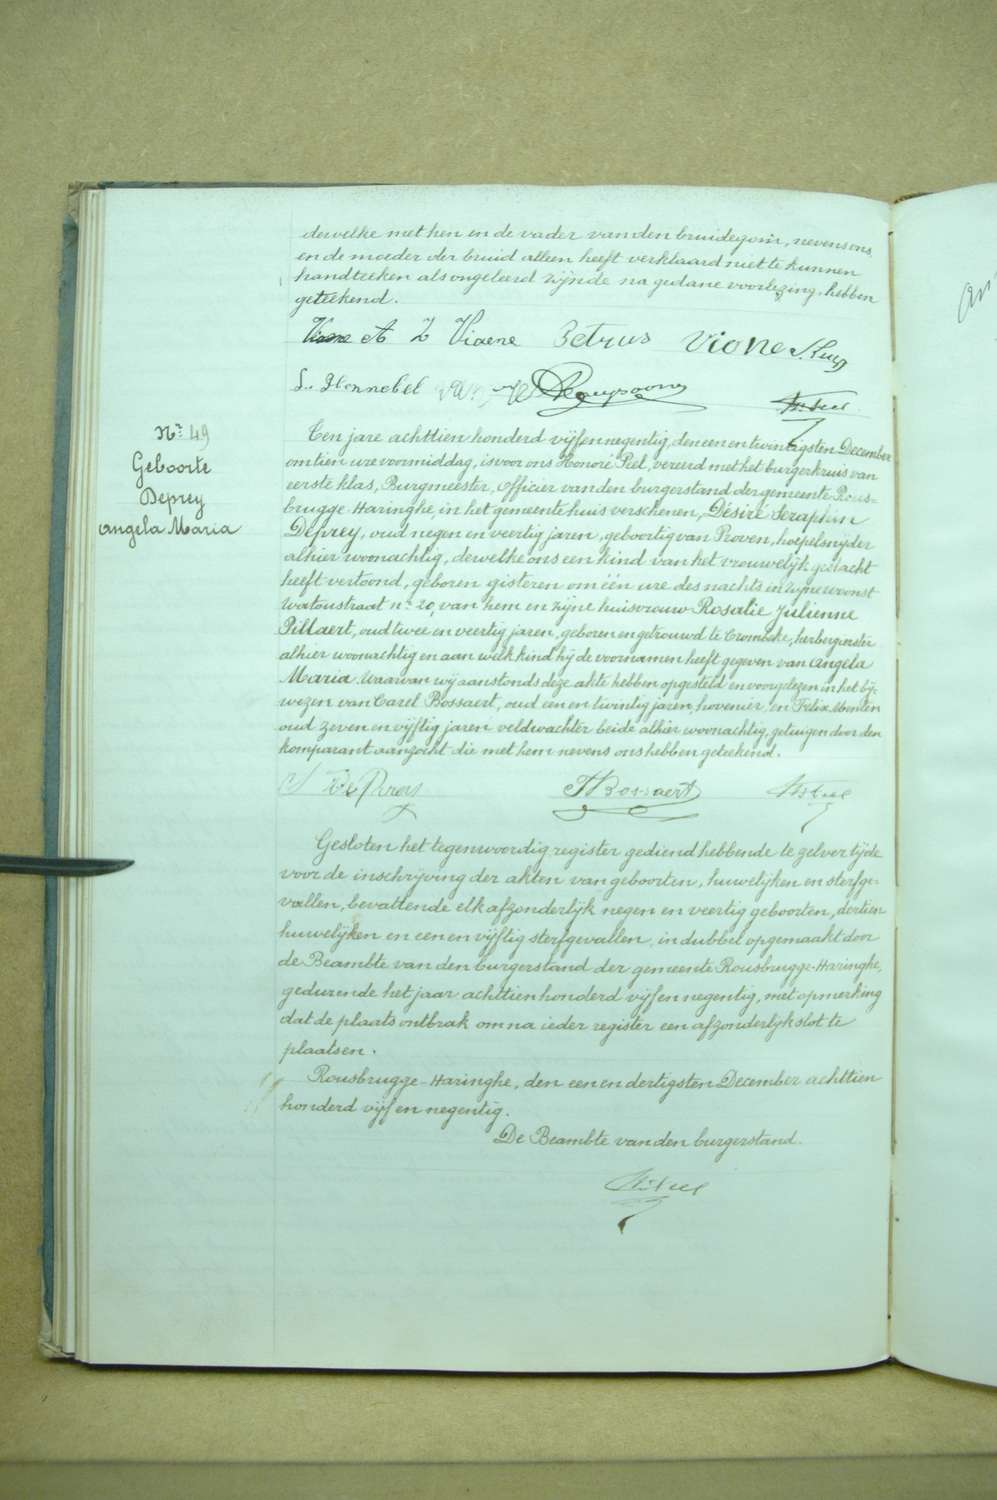 dewelke met hen en de vader van den bruidegom, nevens ons
en de moeder der bruid alleen heeft verklaard niet te kunnen
handteeken als ongeleerd zijnde na gedane voorlezing, hebben
geteekend.
A Z Viaene Petrus Vione
L. Hennebel
Nr. 49
Geboorte
Deprey
Angela Maria
Een jare achttien honderd vijf en negentig, den een en twintigsten December
om tien ure voormiddag, is voor ons Honoré Peel, vereerd met het burgerkruis van
eerste klas, Burgmeester, Officier van den burgerstand der gemeente Rous-
brugge-Haringhe, in het gemeentehuis verschenen, Désiré Seraphin
Deprey, oud negen en veertig jaren, geboortig van Proven, hoepelsnijder
alhier woonachtig, dewelke ons een kind van het vrouwelijk geslacht
heeft vertoond, geboren gisteren om één ure des nachts in zijne woonst
Watoustraat nr. 20, van hem en zijne huisvrouw Rosalie Julienne
Pillaert, oud twee en veertig jaren, geboren en getrouwd te Crombeke, herbergierster
alhier woonachtig en aan welk kind hij de voornamen heeft gegeven van Angela
Maria. Waarvan wij aanstonds deze akte hebben opgesteld en voorgelezen in het bij-
wezen van Carel Bossaert, oud een en twintig jaren, hovenier, en Felix
oud zeven en vijftig jaren veldwachter beide alhier woonachtig, getuigen door den
komparant aanzocht die met hem nevens ons hebben geteekend.
Bossaert
Gesloten het tegenwoordig register gediend hebbende te gelver tijde
voor de inschrijving der akten van geboorten, huwelijken en sterfge-
vallen, bevattende elk afzonderlijk negen en veertig geboorten, dertien
huwelijken en een en vijftig sterfgevallen, in dubbel opgemaakt door
de Beambte van den burgerstand der gemeente Rousbrugge-Haringhe,
gedurende het jaar achttien honderd vijf en negentig, met opmerking
dat de plaats ontbrak om na ieder register een afzonderlijk slot te
plaatsen.
Rousbrugge-Haringhe, den een en dertigsten December achttien
honderd vijf en negentig.
De Beambte van den burgerstand.